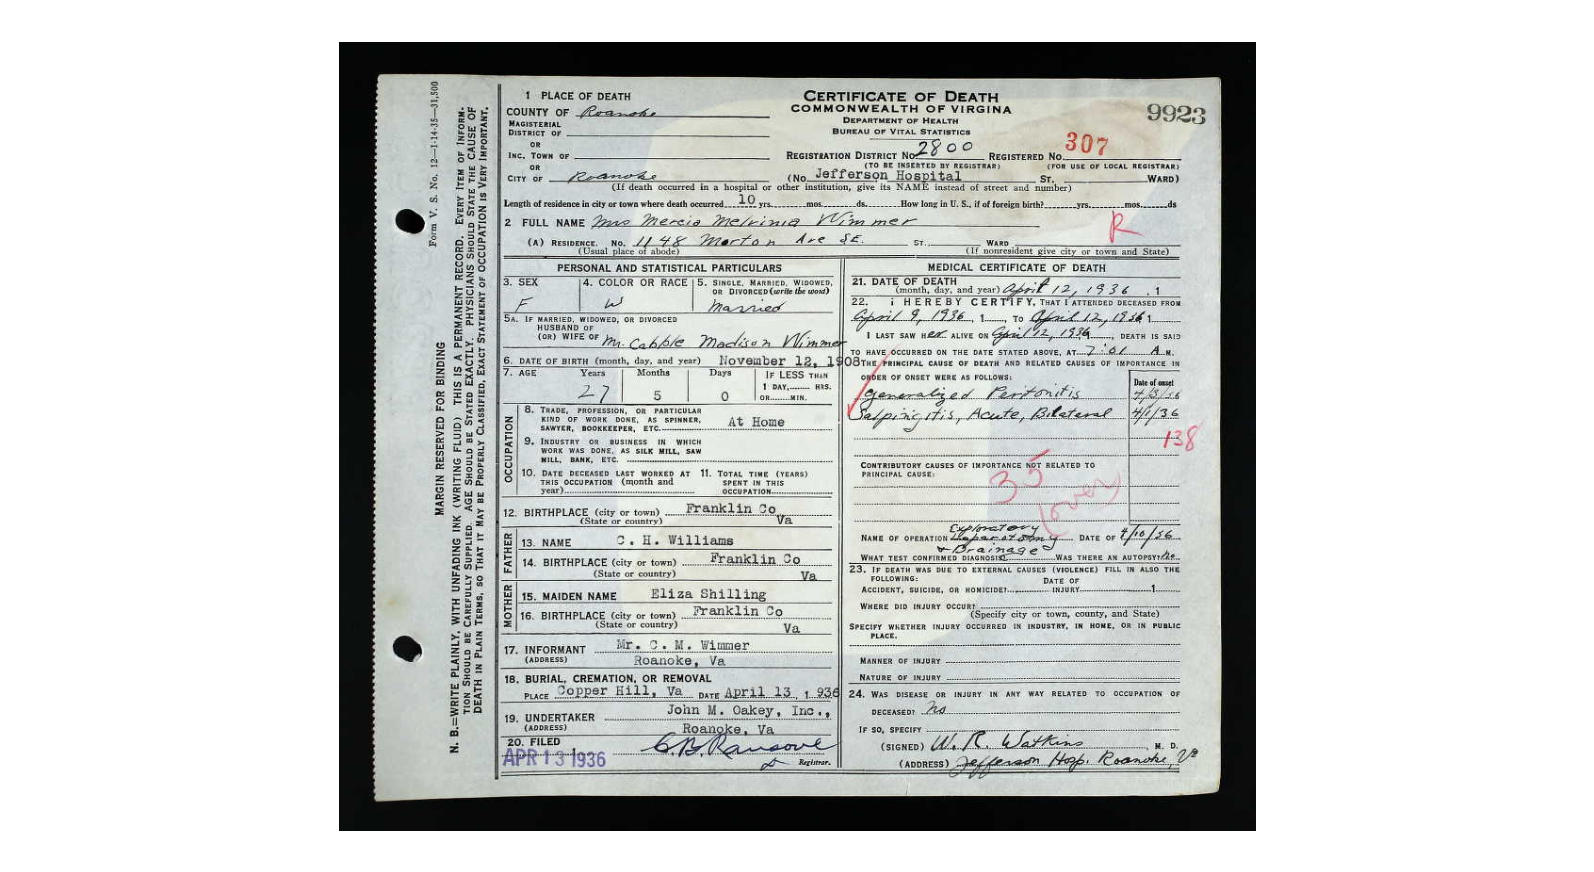 Form V. S. No. 12—1-14-35—31,500
MARGIN RESERVED FOR BINDING
N. B.—WRITE PLAINLY, WITH UNFADING INK (WRITING FLUID) THIS IS A PERMANENT RECORD. EVERY ITEM OF INFORM-
TION SHOULD BE CAREFULLY SUPPLIED. AGE SHOULD BE STATED EXACTLY. PHYSICIANS SHOULD STATE THE CAUSE OF
DEATH IN PLAIN TERMS, SO THAT IT MAY BE PROPERLY CLASSIFIED. EXACT STATEMENT OF OCCUPATION IS VERY IMPORTANT.
1 PLACE OF DEATH
COUNTY OF Roanoke
MAGISTERIAL
DISTRICT OF
OR
INC. TOWN OF
OR
CITY OF Roanoke
CERTIFICATE OF DEATH
COMMONWEALTH OF VIRGINA
DEPARTMENT OF HEALTH
BUREAU OF VITAL STATISTICS
9923
REGISTRATION DISTRICT No. 2800 REGISTERED No. 307
(TO BE INSERTED BY REGISTRAR) (FOR USE OF LOCAL REGISTRAR)
(No. Jefferson Hospital ST. WARD)
(If death occurred in a hospital or other institution, give its NAME instead of street and number)
Length of residence in city or town where death occurred 10 yrs. mos. ds. How long in U. S., if of foreign birth? yrs. mos. ds
2 FULL NAME Mrs Mercia Melvinia Wimmer
R
(A) RESIDENCE. No. 1148 Morton Ave SE. ST. WARD
(Usual place of abode) (If nonresident give city or town and State)
PERSONAL AND STATISTICAL PARTICULARS
3. SEX F
4. COLOR OR RACE W
5. SINGLE, MARRIED, WIDOWED,
OR DIVORCED (write the word)
Married
5A. IF MARRIED, WIDOWED, OR DIVORCED
HUSBAND OF
(OR) WIFE OF Mr. Cabble Madison Wimmer
6. DATE OF BIRTH (month, day, and year) November 12, 1908
7. AGE Years Months Days IF LESS THAN
1 DAY, HRS.
OR MIN.
27 5 0
OCCUPATION
8. TRADE, PROFESSION, OR PARTICULAR
KIND OF WORK DONE, AS SPINNER,
SAWYER, BOOKKEEPER, ETC. At Home
9. INDUSTRY OR BUSINESS IN WHICH
WORK WAS DONE, AS SILK MILL, SAW
MILL, BANK, ETC.
10. DATE DECEASED LAST WORKED AT
THIS OCCUPATION (month and
year)
11. TOTAL TIME (YEARS)
SPENT IN THIS
OCCUPATION
12. BIRTHPLACE (city or town) Franklin Co
(State or country) Va
FATHER
13. NAME C. H. Williams
14. BIRTHPLACE (city or town) Franklin Co
(State or country) Va
MOTHER
15. MAIDEN NAME Eliza Shilling
16. BIRTHPLACE (city or town) Franklin Co
(State or country) Va
17. INFORMANT Mr. C. M. Wimmer
(ADDRESS) Roanoke, Va
18. BURIAL, CREMATION, OR REMOVAL
PLACE Copper Hill, Va DATE April 13, 1936
19. UNDERTAKER John M. Oakey, Inc.,
(ADDRESS) Roanoke, Va
20. FILED
APR 13 1936
Registrar.
MEDICAL CERTIFICATE OF DEATH
21. DATE OF DEATH
(month, day, and year) April 12, 1936, 1
22. I HEREBY CERTIFY, THAT I ATTENDED DECEASED FROM
April 9, 1936, 1 , TO April 12, 1936 1
I LAST SAW Her ALIVE ON April 12, 1936, DEATH IS SAID
TO HAVE OCCURRED ON THE DATE STATED ABOVE, AT 7:01 A.M.
THE PRINCIPAL CAUSE OF DEATH AND RELATED CAUSES OF IMPORTANCE IN
ORDER OF ONSET WERE AS FOLLOWS:
Date of onset
Generalized Peritonitis
Salpingitis, Acute, Bilateral 4/1/36
138
CONTRIBUTORY CAUSES OF IMPORTANCE NOT RELATED TO
PRINCIPAL CAUSE:
35
(over)
NAME OF OPERATION Exploratory Laparotomy DATE OF 4/10/36
+ Drainage
WHAT TEST CONFIRMED DIAGNOSIS WAS THERE AN AUTOPSY? No
23. IF DEATH WAS DUE TO EXTERNAL CAUSES (VIOLENCE) FILL IN ALSO THE
FOLLOWING:
ACCIDENT, SUICIDE, OR HOMICIDE? DATE OF INJURY 1
WHERE DID INJURY OCCUR?
(Specify city or town, county, and State)
SPECIFY WHETHER INJURY OCCURRED IN INDUSTRY, IN HOME, OR IN PUBLIC
PLACE.
MANNER OF INJURY
NATURE OF INJURY
24. WAS DISEASE OR INJURY IN ANY WAY RELATED TO OCCUPATION OF
DECEASED? No
IF SO, SPECIFY
(SIGNED) W. R. Watkins, M. D.
(ADDRESS) Jefferson Hosp. Roanoke, Va